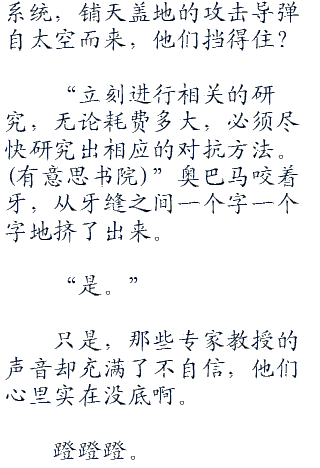 系统，铺天盖地的攻击导弹
自太空而来，他们挡得住？
“立刻进行相关的研
究，无论耗费多大，必须尽
快研究出相应的对抗方法。
(有意思书院)”奥巴马咬着
牙，从牙缝之间一个字一个
字地挤了出来。
“是。”
只是，那些专家教授的
声音却充满了不自信，他们
心里实在没底啊。
蹬蹬蹬。